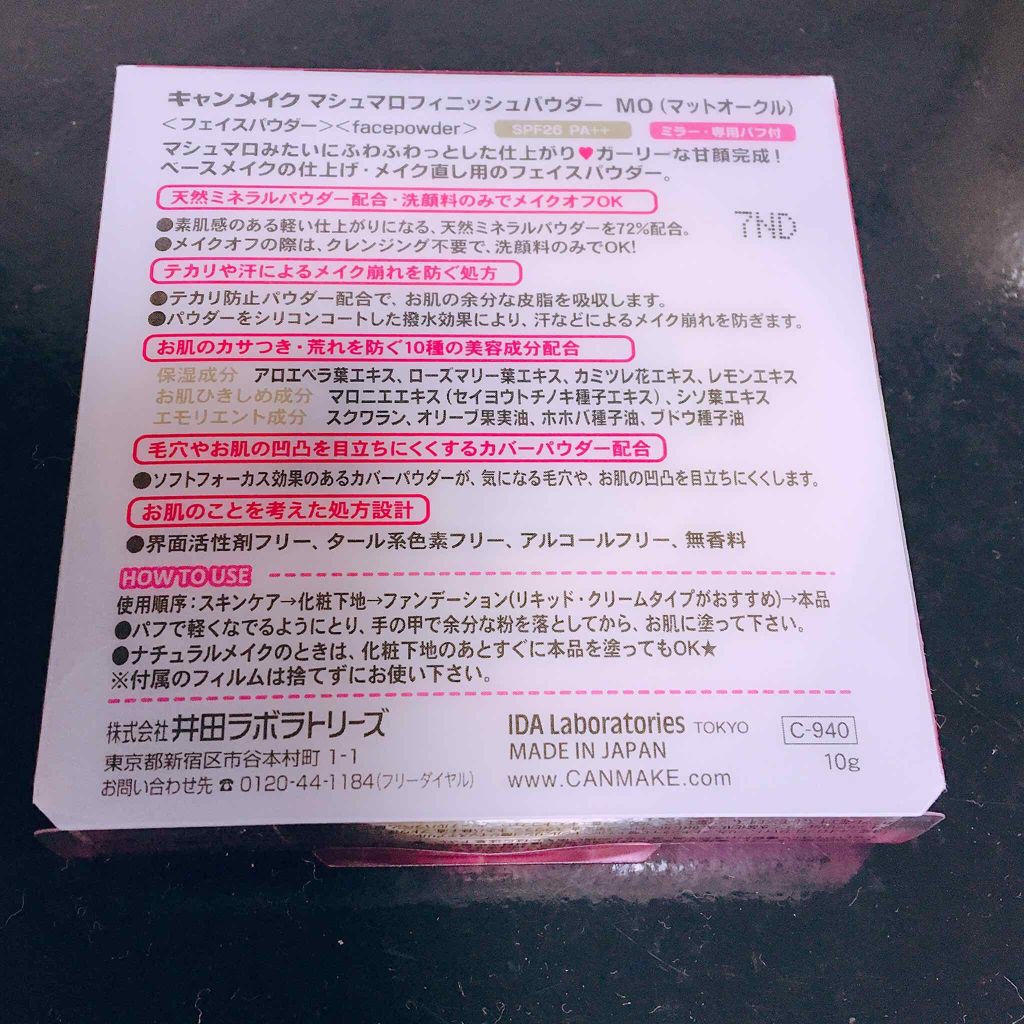 キャンメイク マシュマロフィニッシュパウダー MO (マットオークル)
<フェイスパウダー><facepowder> SPF26 PA++ ミラー・専用パフ付
マシュマロみたいにふわふわっとした仕上がり♥ガーリーな甘顔完成!
ベースメイクの仕上げ・メイク直し用のフェイスパウダー。
天然ミネラルパウダー配合・洗顔料のみでメイクオフOK
7ND
●素肌感のある軽い仕上がりになる、天然ミネラルパウダーを72%配合。
●メイクオフの際は、クレンジング不要で、洗顔料のみでOK!
テカリや汗によるメイク崩れを防ぐ処方
●テカリ防止パウダー配合で、お肌の余分な皮脂を吸収します。
●パウダーをシリコンコートした撥水効果により、汗などによるメイク崩れを防ぎます。
お肌のカサつき・荒れを防ぐ10種の美容成分配合
保湿成分 アロエベラ葉エキス、ローズマリー葉エキス、カミツレ花エキス、レモンエキス
お肌ひきしめ成分 マロニエエキス(セイヨウトチノキ種子エキス)、シソ葉エキス
エモリエント成分 スクワラン、オリーブ果実油、ホホバ種子油、ブドウ種子油
毛穴やお肌の凹凸を目立ちにくくするカバーパウダー配合
●ソフトフォーカス効果のあるカバーパウダーが、気になる毛穴や、お肌の凹凸を目立ちにくくします。
お肌のことを考えた処方設計
●界面活性剤フリー、タール系色素フリー、アルコールフリー、無香料
HOW TO USE
使用順序:スキンケア→化粧下地→ファンデーション(リキッド・クリームタイプがおすすめ)→本品
●パフで軽くなでるようにとり、手の甲で余分な粉を落としてから、お肌に塗って下さい。
●ナチュラルメイクのときは、化粧下地のあとすぐに本品を塗ってもOK★
※付属のフィルムは捨てずにお使い下さい。
株式会社 井田ラボラトリーズ
東京都新宿区市谷本村町 1-1
お問い合わせ先 ☎ 0120-44-1184(フリーダイヤル)
IDA Laboratories TOKYO
MADE IN JAPAN
www.CANMAKE.com
C-940
10g